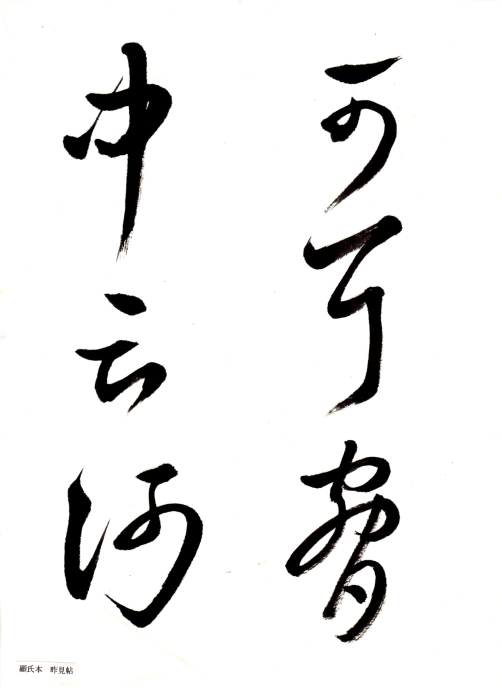 可耳
中云何
顧氏本　昨見帖